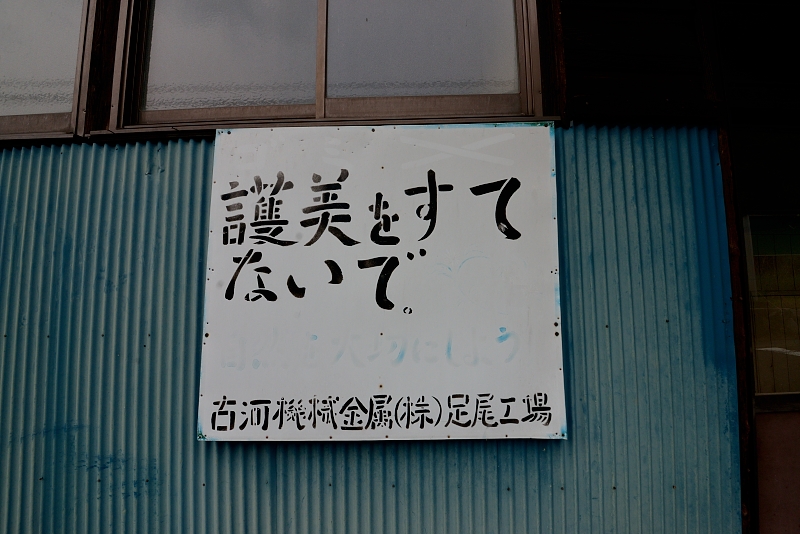 護美をすて
ないで。
自然を大切にしよう
古河機械金属(株)足尾工場